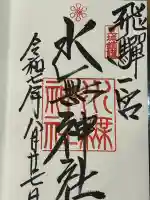 飛騨一宮
水無神社
令和七年八月廿七日